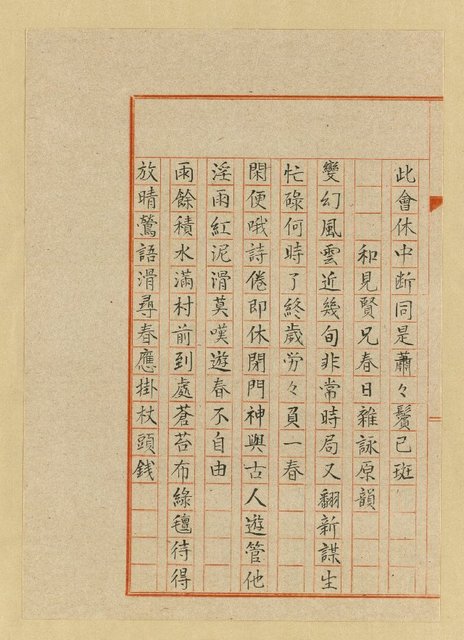 此會休中断同是蕭々鬢已斑
和見賢兄春日雜詠原韻
變幻風雲近幾旬非常時局又翻新謀生
忙碌何時了終歲労々負一春
閑便哦詩倦即休閉門神與古人遊管他
淫雨紅泥滑莫嘆遊春不自由
雨餘積水滿村前到處蒼苔布綠氊待得
放晴鶯語滑尋春應掛杖頭銭